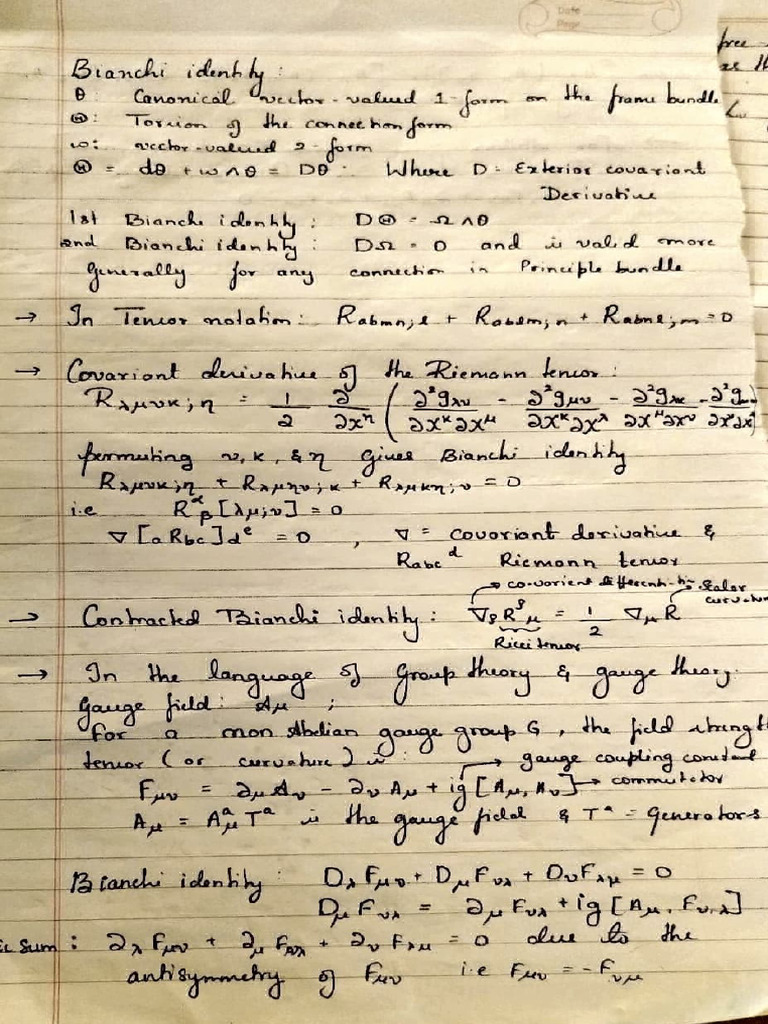 Date
Page
free
Bianchi identity:
θ: Canonical vector-valued 1-form on the frame bundle
Θ: Torsion of the connection form
ω: vector-valued 2-form
Θ = dθ + ω∧θ = Dθ. Where D: Exterior covariant
Derivative
1st Bianchi identity: DΘ = Ω∧θ
2nd Bianchi identity: DΩ = 0 and is valid more
generally for any connection in Principle bundle
→ In Tensor notation: Rabmn;l + Rablm;n + Rabnl;m = 0
→ Covariant derivative of the Riemann tensor:
Rλμνκ;η = 1/2 ∂/∂xη (∂²gλν/∂xκ∂xμ - ∂²gμν/∂xκ∂xλ - ∂²gλκ/∂xμ∂xν - ∂²g
permuting ν, κ, & η gives Bianchi identity
Rλμνκ;η + Rλμην;κ + Rλμκη;ν = 0
i.e Rαβ[λμ;ν] = 0
∇[aRbc]dᵉ = 0, ∇ = covariant derivative &
Rabcᵈ Riemann tensor
→ co-varient different scalar
→ Contracted Bianchi identity: ∇ρRρμ = 1/2 ∇μR
Ricci tensor
→ In the language of Group theory & gauge theory.
Gauge field: Aμ;
For a non Abelian gauge group G, the field strengt
tensor (or curvature) is: → gauge coupling constant
Fμν = ∂μAν - ∂νAμ + ig[Aμ, Aν] → commutator
Aμ = AμᵃTᵃ is the gauge field & Tᵃ = Generators
Bianchi identity: DλFμν + DμFνλ + DνFλμ = 0
DμFνλ = ∂μFνλ + ig[Aμ, Fνλ]
Sum: ∂λFμν + ∂μFνλ + ∂νFλμ = 0 due to the
antisymmetry of Fμν i.e Fμν = -Fνμ